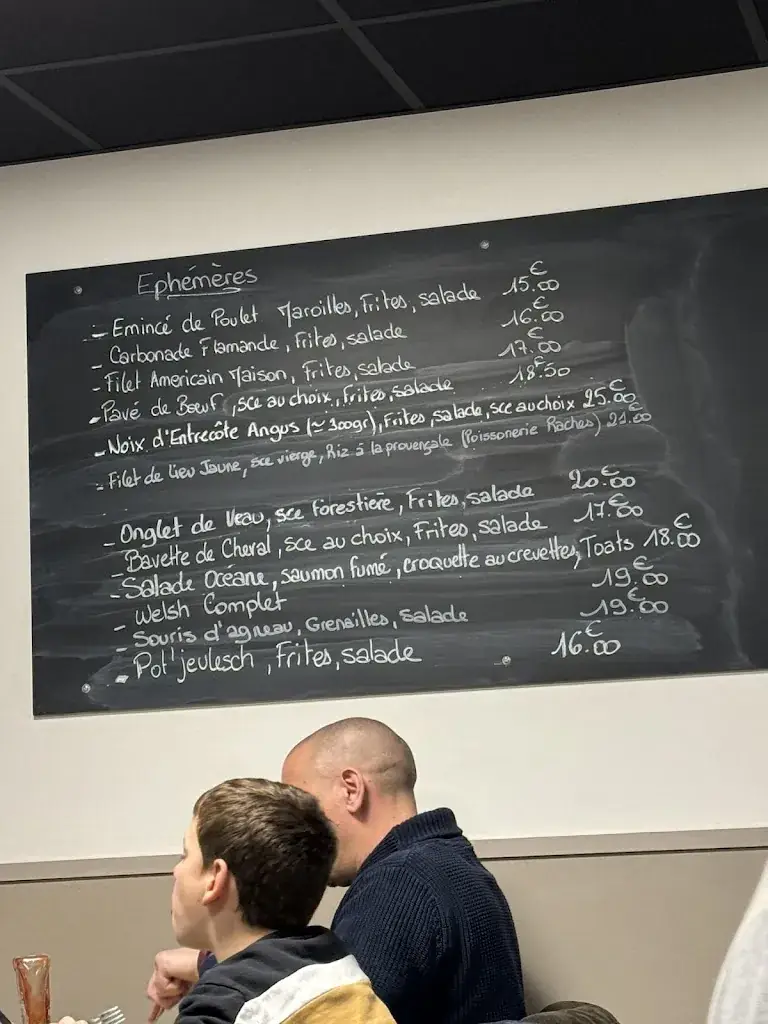 Ephémères
- Emincé de Poulet Maroilles, Frites, salade 15.00€
- Carbonade Flamande, Frites, salade 16.00€
- Filet Americain Maison, Frites, salade 17.00€
- Pavé de Bœuf, sce au choix, Frites, salade 18.50€
- Noix d'Entrecôte Angus (≃ 300gr), Frites, salade, sce au choix 25.00€
- Filet de Lieu Jaune, sce vierge, Riz à la provençale (Poissonerie Raches) 21.00€
- Onglet de Veau, sce forestière, Frites, salade 20.00€
- Bavette de Cheval, sce au choix, Frites, salade 17.00€
- Salade Océane, saumon fumé, croquette au crevettes, Toats 18.00€
- Welsh Complet 19.00€
- Souris d'agneau, Grenailles, Salade 19.00€
- Pot'jeulesch, Frites, salade 16.00€